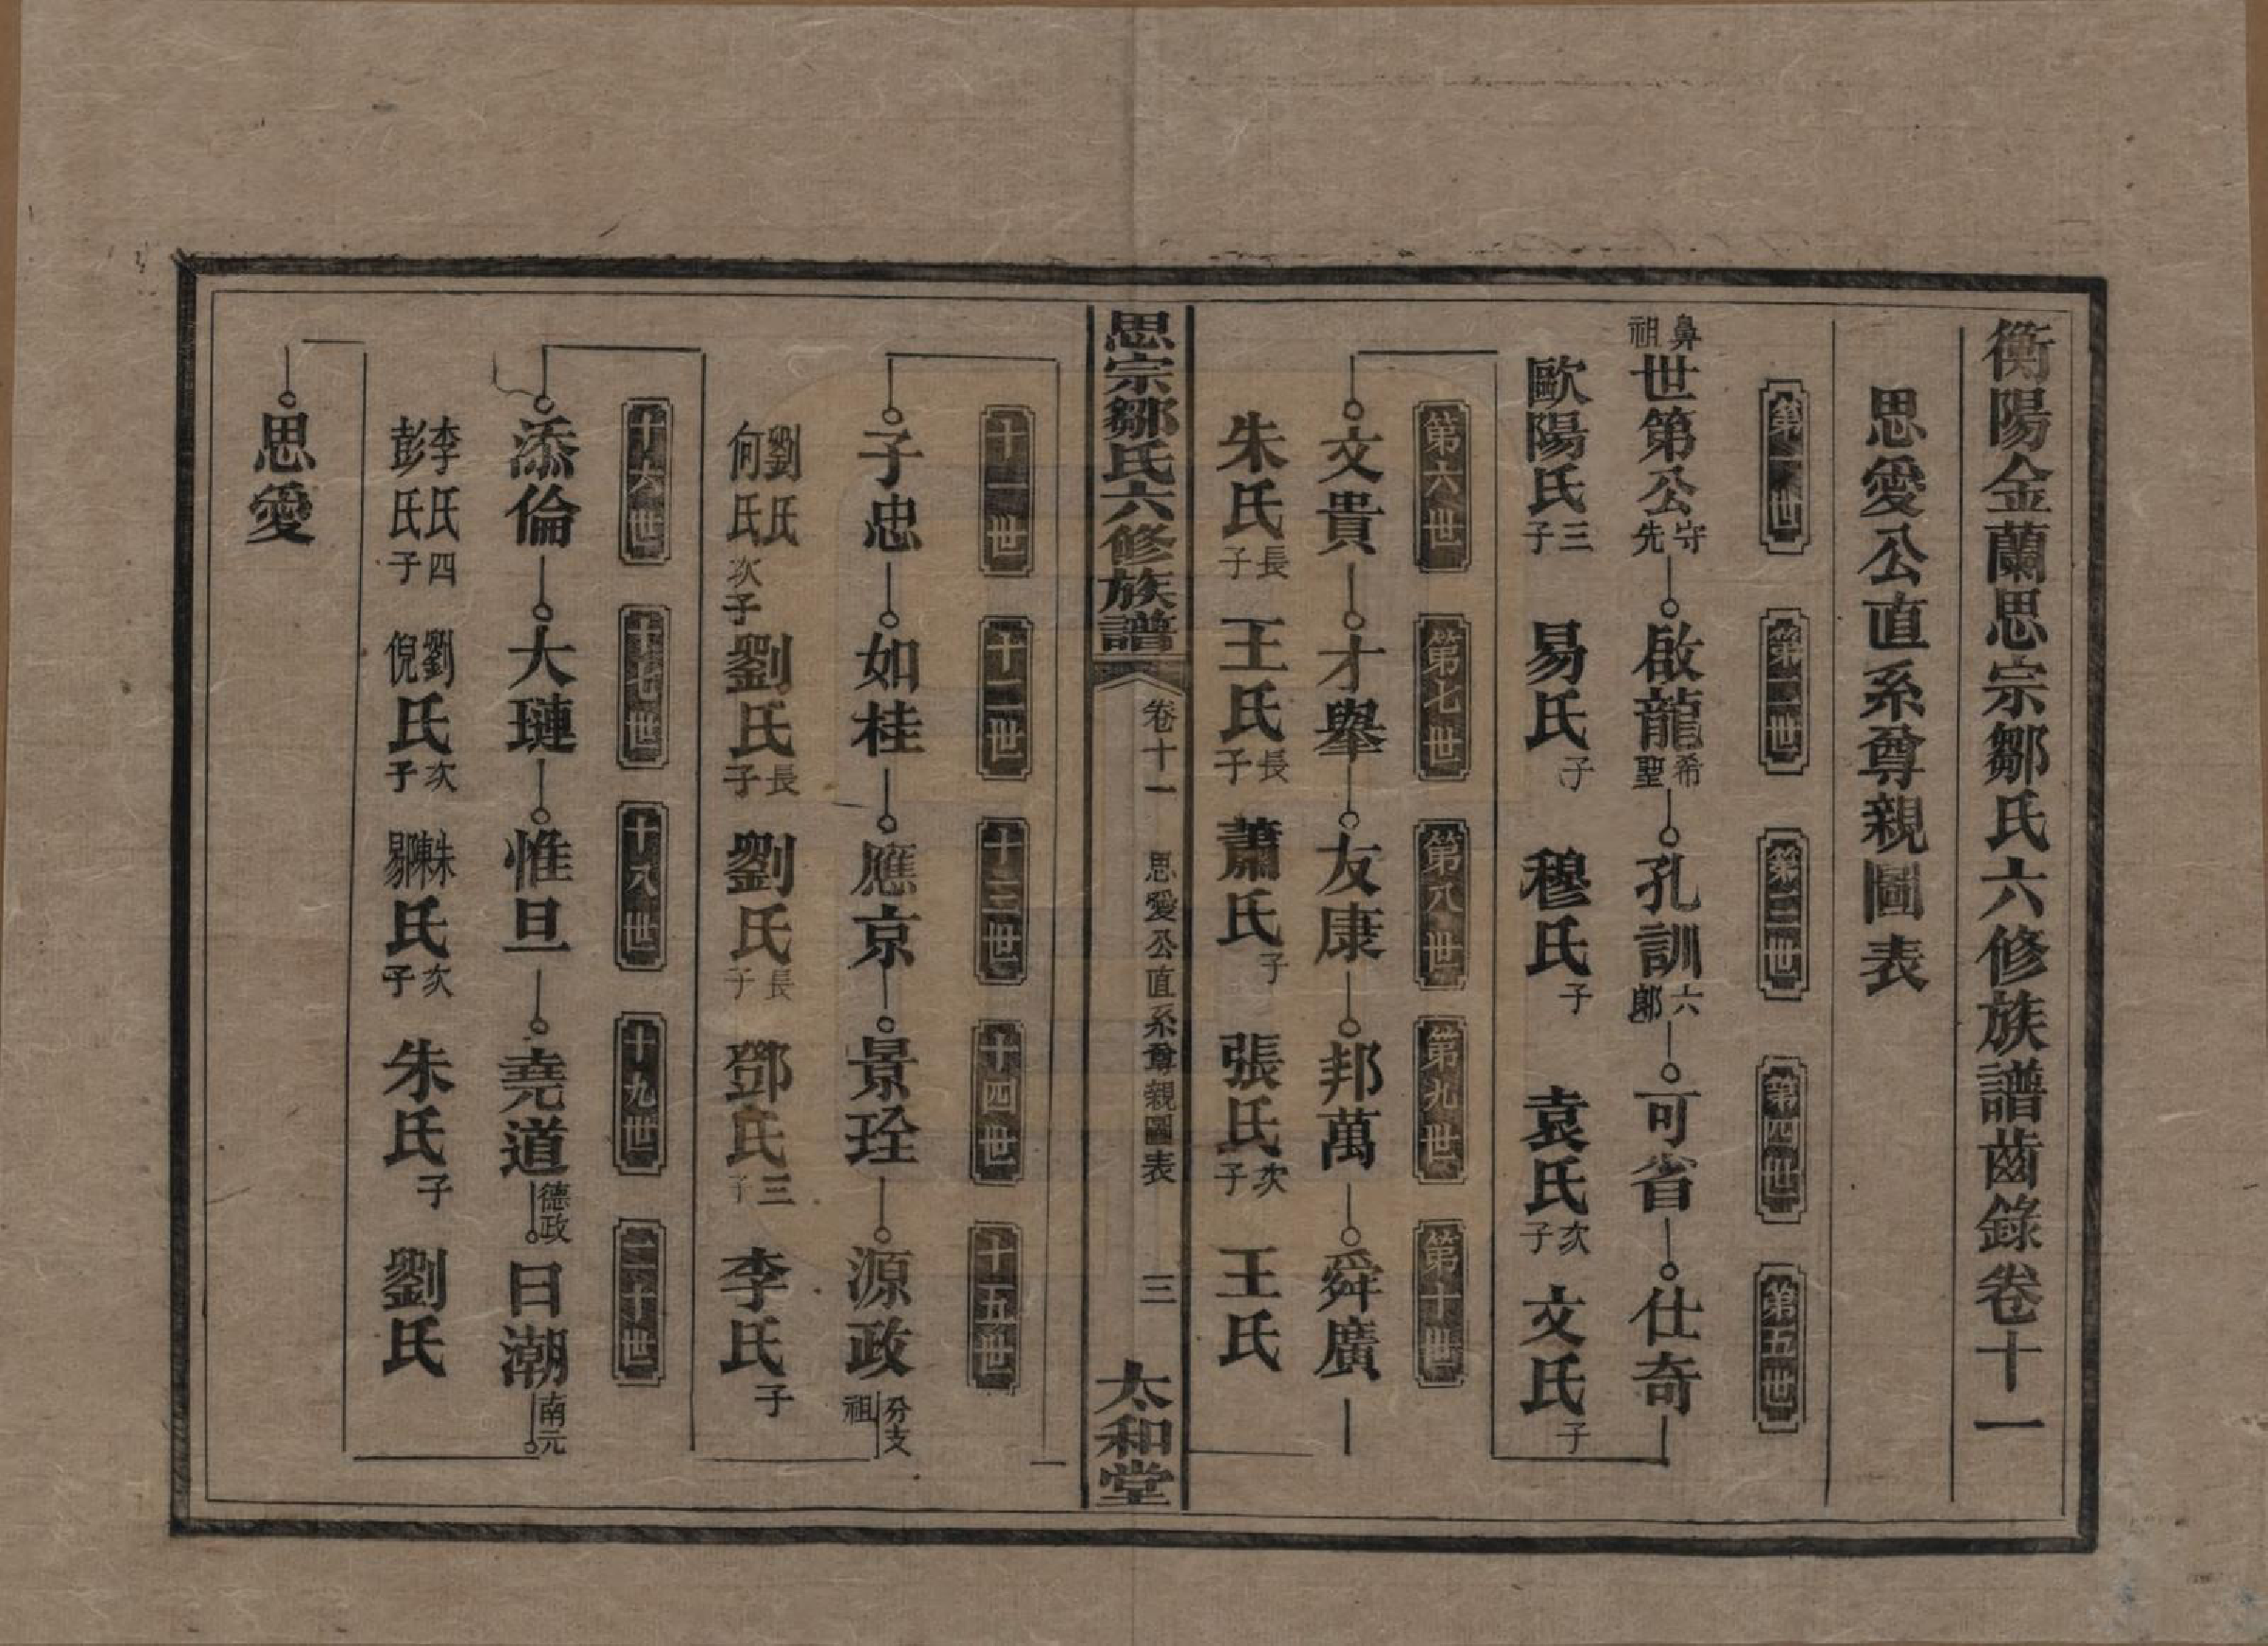 衡陽金蘭思宗鄒氏六修族譜齒錄卷十一
思愛公直系尊親圖表
第一世 第二世 第三世 第四世 第五世
鼻祖 世第公 守先 啟龍 希聖 孔訓 六郎 可省 仕奇
歐陽氏 三子 易氏 子 穆氏 子 袁氏 次子 文氏 子
第六世 第七世 第八世 第九世 第十世
文貴 才舉 友康 邦萬 舜廣
朱氏 長子 王氏 長子 蕭氏 子 張氏 次子 王氏
思宗鄒氏六修族譜 卷十一 思愛公直系尊親圖表 三 太和堂
十一世 十二世 十三世 十四世 十五世
子忠 如桂 應京 景珍 源政 分支祖
劉氏 何氏 次子 劉氏 長子 劉氏 長子 鄧氏 三子 李氏 子
十六世 十七世 十八世 十九世 二十世
添倫 大璉 惟旦 堯道 德政 日潮 南元
李氏 彭氏 四子 劉倪氏 次子 朱陳易氏 次子 朱氏 子 劉氏
思愛